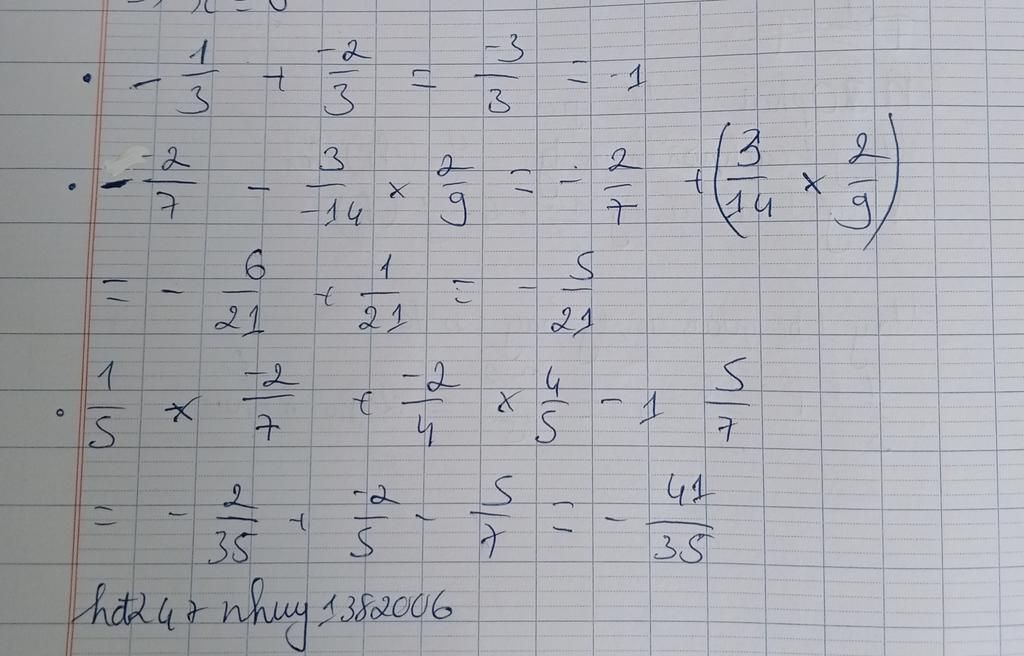 • - 1/3 + -2/3 = -3/3 = -1
• - 2/7 - 3/-14 × 2/9 = - 2/7 + (3/14 × 2/9)
= - 6/21 + 1/21 = - 5/21
• 1/5 × -2/7 + -2/4 × 4/5 - 1 5/7
= - 2/35 + -2/5 - 5/7 = - 41/35
hđ247 nhuy1382006